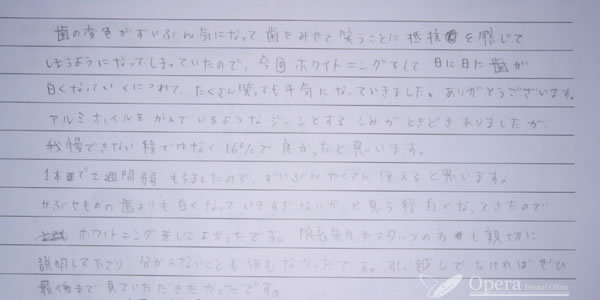 歯の変色がずいぶん気になって歯をみせて笑うことに抵抗を感じて
しまうようになってしまっていたので、今回ホワイトニングをして日に日に歯が
白くなっていくにつれて、たくさん笑っても平気になっていきました。ありがとうございます。
アルミホイルをかんでいるようなジーンとするしみがときどきありましたが、
我慢できない程ではなく16%で良かったと思います。
1本で2週間弱もちましたので、ずいぶんたくさん使えると思います。
かぶせものの歯よりも白くなっていきすぎないか、と思う程白くなってきたので
ホワイトニングをしてよかったです。院長先生やスタッフの方も親切に
説明して下さり、分からないことも何もなかったです。引っ越しでなければぜひ
最後まで見ていただきたかったです。
Opera
Dental Office